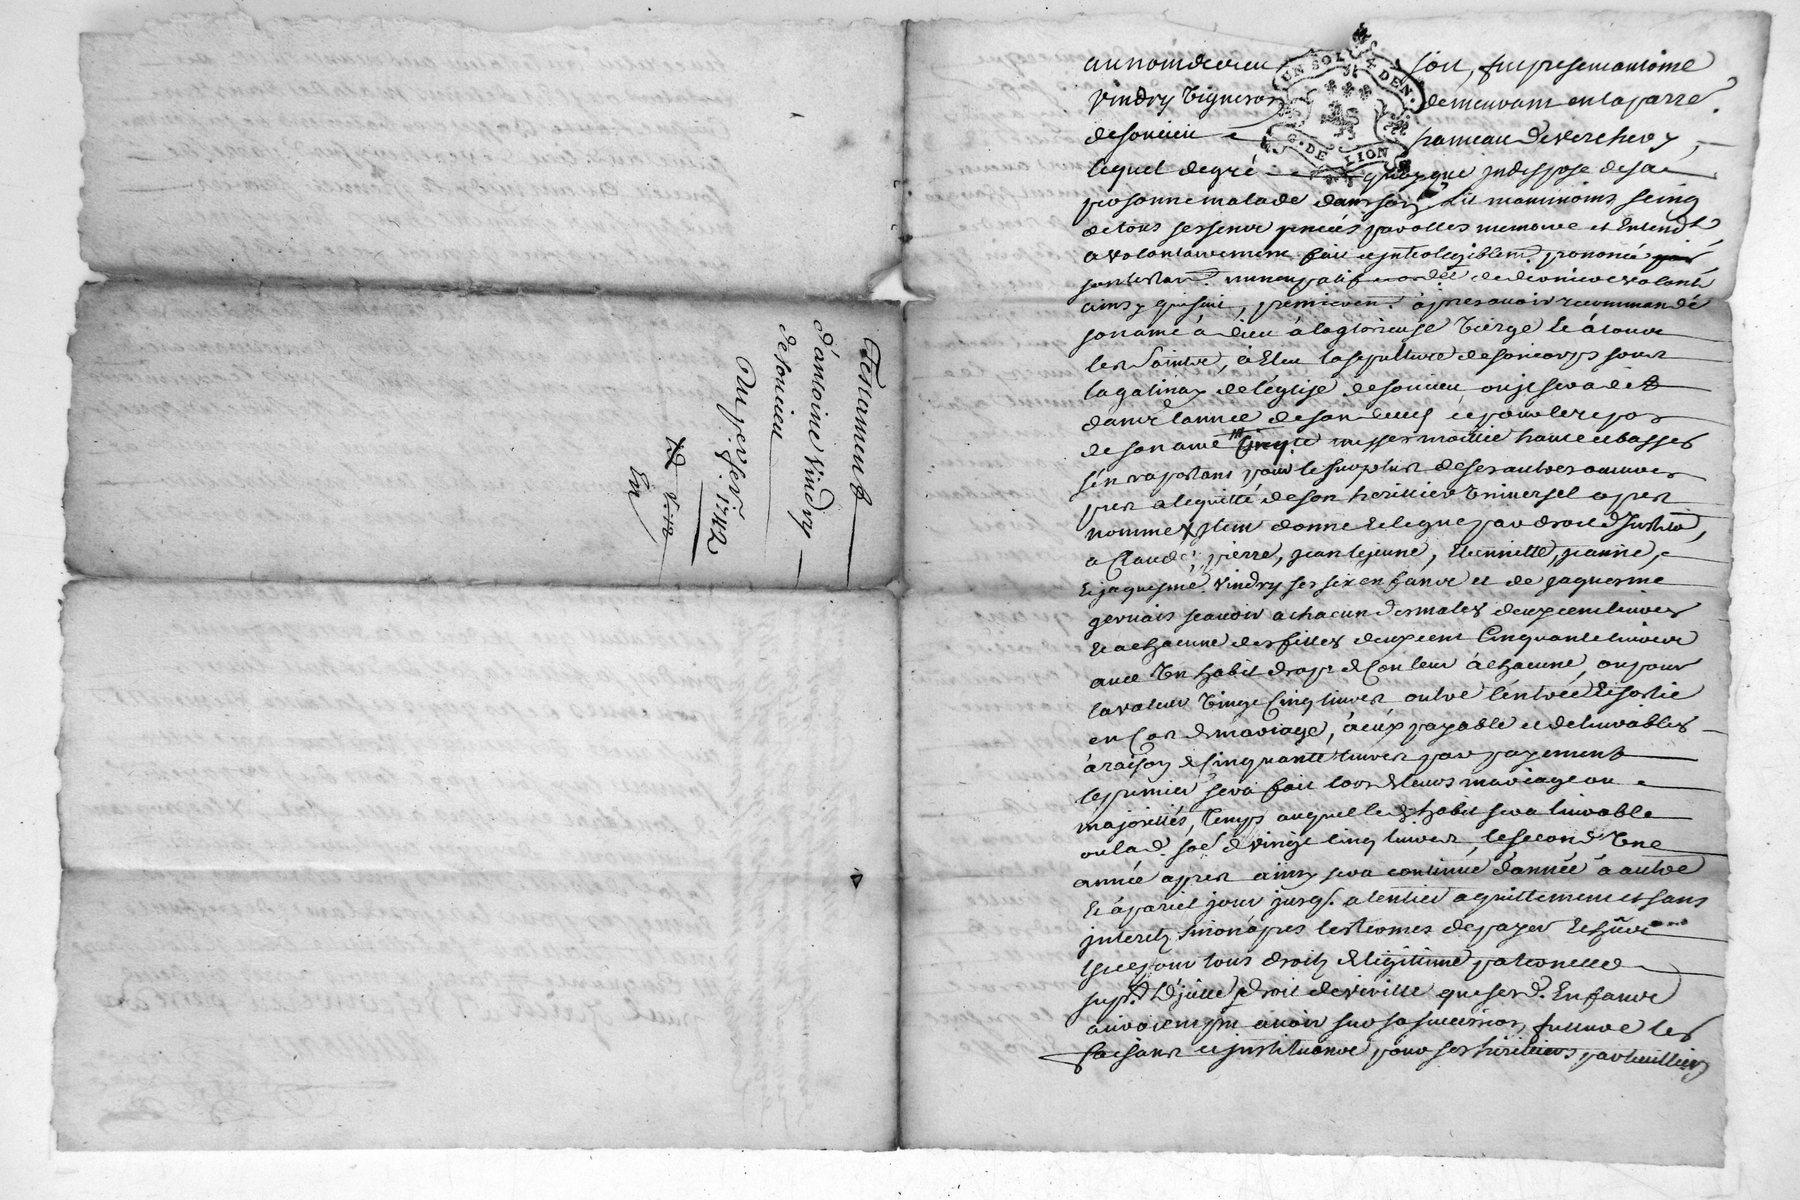 Testament
d'antoine vindry
de soucieu
Du 1742
au nom de dieu soit, fut present antoine
vindry vigneron demeurant en la parre
de soucieu hameau de verchery
lequel de gré quoyque indispose de sa
personne malade dans son lit neanmoins
de tous ses sens pencées parolles memoire et entendt
a volontairement fait et intelligiblemt prononcé
son testamt nuncupatif et ordce de derniere volonté
ainsy que suit, premieremt apres avoir recommandé
son ame à dieu à la glorieuse vierge et à tous
les saints, à elu la sepulture de son corps sous
la galinay de l'eglise de soucieu ou je sera dit
dans l'année de son deces et pour le repos
de son ame messes moitié haute et basses
s'en raportant pour le surplus de ses autres œuvres
pies a lequitté de son heritier universel apres
nommé item donne et legue par droit d'institon
a Claude, pierre, jean lejeune, etiennette, jeanne,
et jaquesme vindry ses six enfans et de jaquesme
gervais scavoir a chacun des males deux cent livres
et a chacune des filles deux cent cinquante livres
avec un habit drap de couleur à chacune, ou pour
la valeur vingt cinq livres outre l'entrée et sortie
en cas de mariage, à eux payable et delivrables
à raison de cinquante livres par payement
le premier sera fait lors de leurs mariage ou
majorittés, temps auquel led habit sera livrable
ou lad soe de vingt cinq livres, le second une
année apres ainsy sera continué d'année à autre
et à pareil jour jusq. a l'entier aquittement et sans
interets sinon apres les termes de payer
et ce pour tous droits de legitime paternelle
supt d'jcelle droit de virille que sesd. enfans
auroient pu avoir sur sa succession, futeure les
faisant et instituant pour ses heritiers particulliers